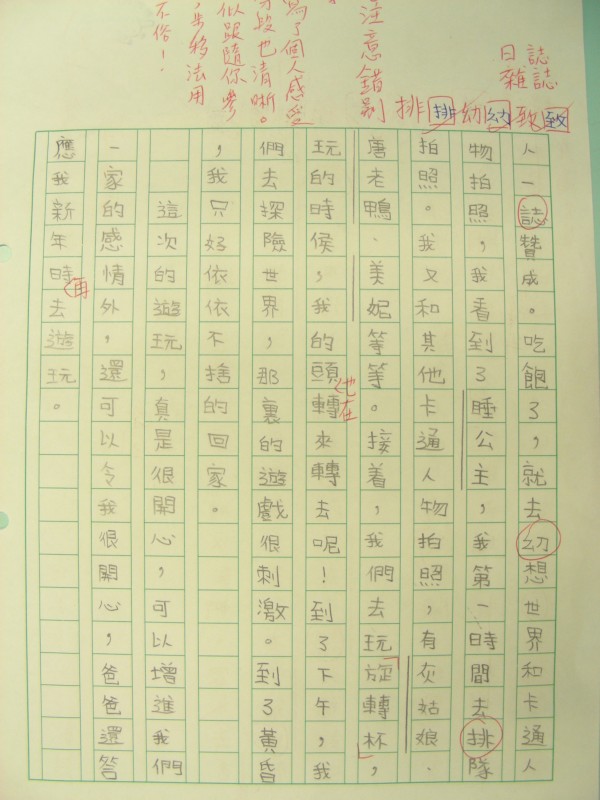 日誌
雜誌
排排幼幼致致
注意錯別
寫了個人感受
分段也清晰。
似跟隨你參
步移法用
不俗！
人一誌贊成。吃飽了，就去幼想世界和卡通人
物拍照，我看到了睡公主，我第一時間去排隊
拍照。我又和其他卡通人物拍照，有灰姑娘、
唐老鴨、美妮等等。接着，我們去玩旋轉杯，
玩的時侯，我的頭也在轉來轉去呢！到了下午，我
們去探險世界，那裏的遊戲很刺激。到了黃昏
，我只好依依不捨的回家。
這次的遊玩，真是很開心，可以增進我們
一家的感情外，還可以令我很開心，爸爸還答
應我新年時再去遊玩。